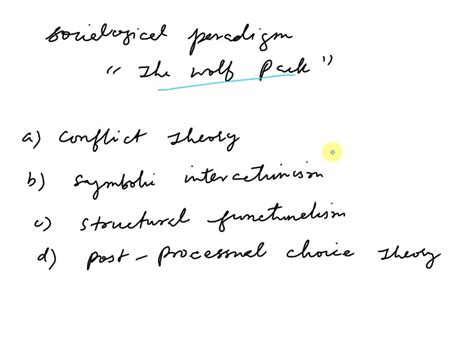 sociological paradigm
"The wolf Pack"
a) Conflict Theory
b) Symbolic interactionism
c) Structural functionalism
d) Post-processual choice Theory